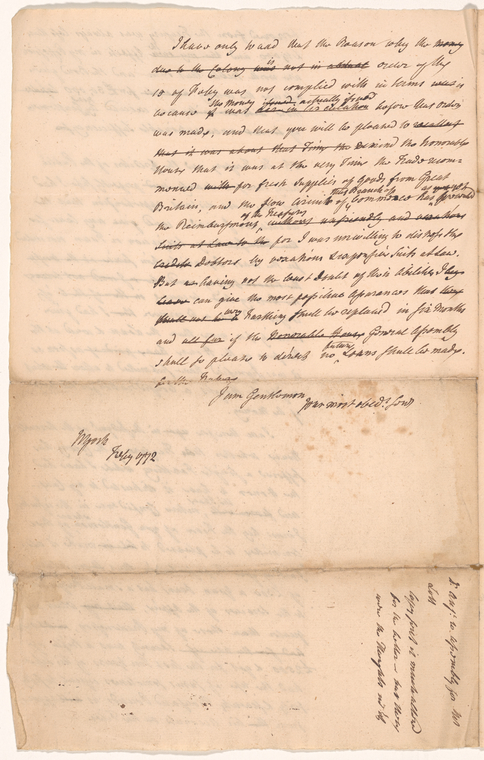 I have only to add that the Reason why the money
due to the Colony was is not in actual order of the
15 of Feby was not complied with in terms was is
because the money issued, actually issued
it was in circulation before that order
was made, and that you will be pleased to recollect
that it was about that Time the remind the honorable
House that it was at the very Time the Trade comm
menced with for fresh Supplies of Goods from Great
Britain, and the slow Circuits of this Branch of Commerce has
the Reimbursment, of the Treasury without unfriendly and vexatious
Suits at Law to the for I was unwilling to distress the
Credit Debtors by vexatious & expensive Suits at Law.
But as having not the least Doubt of their Abilities I
can give the most possitive Assurances that
every Farthing shall be replaced in six Months
and all if the Honorable House General Assembly
shall so please to direct no future Loans shall be made.
for the
I am Gentlemen
Your most obedt. Servt
NYork
Feby 1772
Dr. Ansr. to Assembly for Mr
Lott
Copy first is much altered
for the better
were the Thoughts